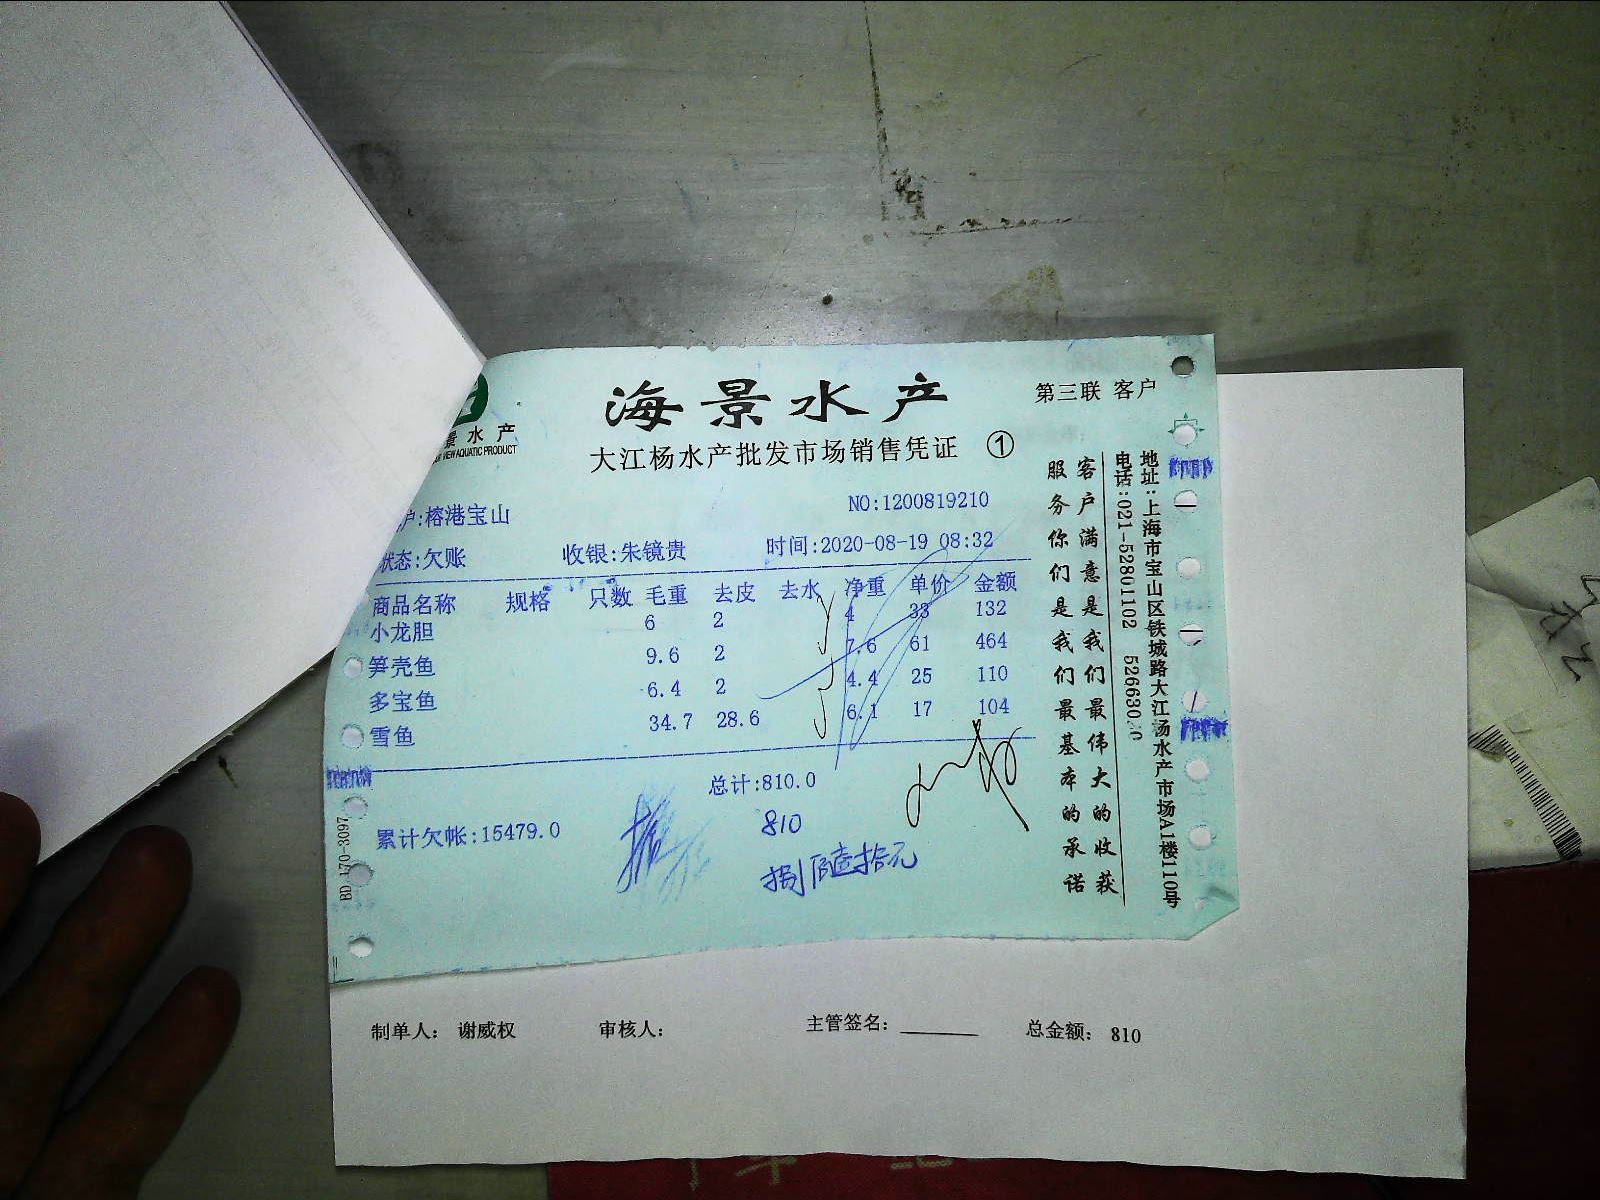 海景水产
第三联 客户
景水产
VIEW AQUATIC PRODUCT
大江杨水产批发市场销售凭证 ①
户:榕港宝山
NO:1200819210
状态:欠账 收银:朱镜贵 时间:2020-08-19 08:32
商品名称 规格 只数 毛重 去皮 去水 净重 单价 金额
小龙胆 6 2 4 33 132
笋壳鱼 9.6 2 7.6 61 464
多宝鱼 6.4 2 4.4 25 110
雪鱼 34.7 28.6 6.1 17 104
总计:810.0
累计欠帐:15479.0
810
客户满意是我们最伟大的收获
服务你们是我们最基本的承诺
地址:上海市宝山区铁城路大江汤水产市场A1楼110号
电话:021-52801102 526630
BD 170-3097
制单人: 谢威权 审核人: 主管签名: 总金额: 810